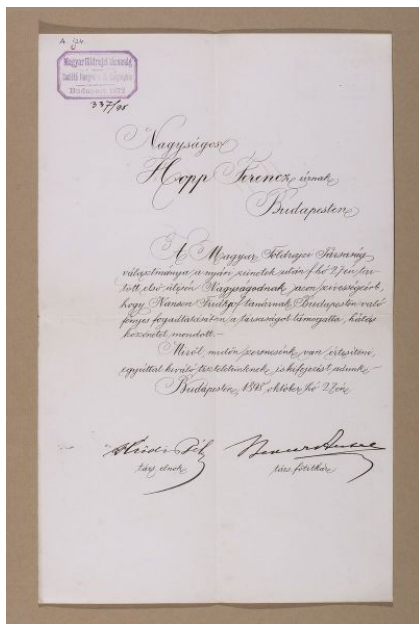 A. 124.
Magyar Földrajzi társaság
Budapest 1872
337/98
Nagyságos
Hopp Ferencz úrnak
Budapesten
A Magyar Földrajzi Társaság
választmánya a nyári szünetek után f. hó 27én tar-
tott első ülésén Nagyságodnak azon szívességéért,
hogy Nansen Fridtjof tanárnak Budapesten való
fényes fogadtatásában a társaságot támogatta, hálás
köszönetet mondott.-
Miről, midőn szerencsénk van értesíteni,
egyúttal kiváló tiszteletünknek is kifejezést adunk.-
Budapesten, 1898, október hó 27én
társ. elnök
társ. főtitkár